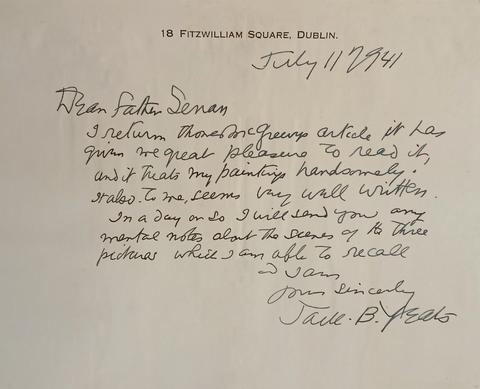 18 FITZWILLIAM SQUARE, DUBLIN.
July 11th 1941
Dear Father Senan
I return Thomas McGreevys article it has
given me great pleasure to read it,
and it treats my paintings handsomely.
It also to me, seems very well written.
In a day or so I will send you any
mental notes about the scenes of the three
pictures which I am able to recall
I am
yours sincerely
Jack. B. Yeats